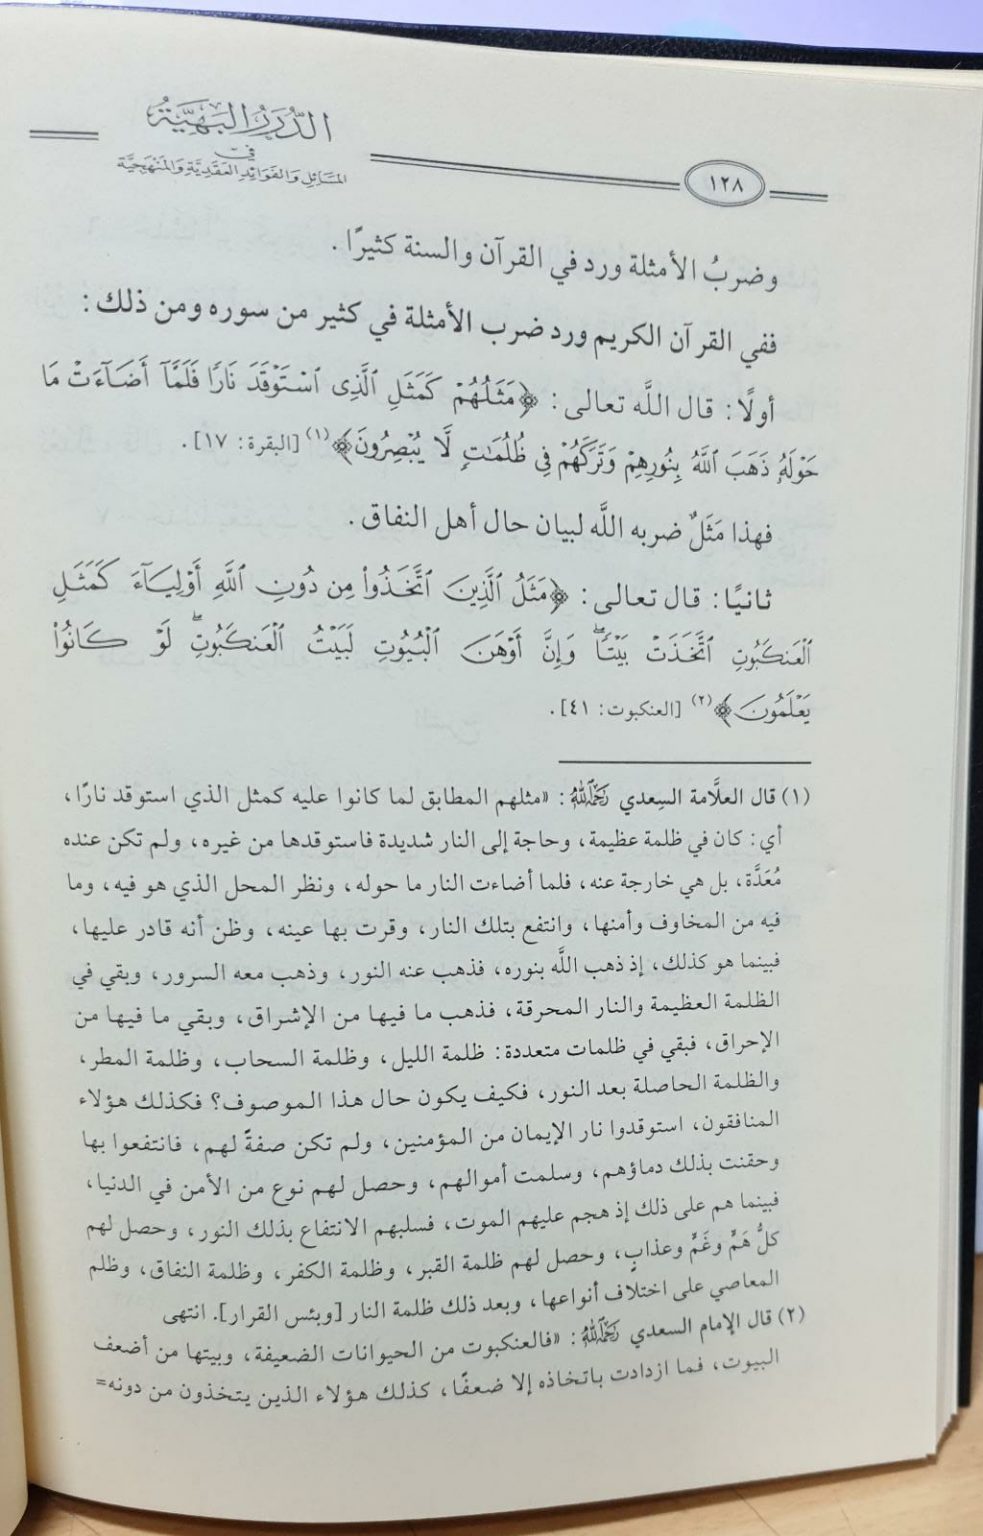 الدُّرَرُ البَهِيَّةُ
في
المَسَائِلِ وَالفَوَائِدِ العَقَدِيَّةِ وَالمَنْهَجِيَّة
١٢٨
وضربُ الأمثلة ورد في القرآن والسنة كثيرًا.
ففي القرآن الكريم ورد ضرب الأمثلة في كثير من سوره ومن ذلك:
أولًا: قال اللَّه تعالى: ﴿مَثَلُهُمۡ كَمَثَلِ ٱلَّذِى ٱسۡتَوۡقَدَ نَارٗا فَلَمَّآ أَضَآءَتۡ مَا
حَوۡلَهُۥ ذَهَبَ ٱللَّهُ بِنُورِهِمۡ وَتَرَكَهُمۡ فِى ظُلُمَٰتٖ لَّا يُبۡصِرُونَ﴾(١) [البقرة: ١٧].
فهذا مَثَلٌ ضربه اللَّه لبيان حال أهل النفاق.
ثانيًا: قال تعالى: ﴿مَثَلُ ٱلَّذِينَ ٱتَّخَذُواْ مِن دُونِ ٱللَّهِ أَوۡلِيَآءَ كَمَثَلِ
ٱلۡعَنكَبُوتِ ٱتَّخَذَتۡ بَيۡتٗاۖ وَإِنَّ أَوۡهَنَ ٱلۡبُيُوتِ لَبَيۡتُ ٱلۡعَنكَبُوتِۖ لَوۡ كَانُواْ
يَعۡلَمُونَ﴾(٢) [العنكبوت: ٤١].
(١) قال العلَّامة السِعدي رَحِمَهُ ٱللَّهُ: «مثلهم المطابق لما كانوا عليه كمثل الذي استوقد نارًا،
أي: كان في ظلمة عظيمة، وحاجة إلى النار شديدة فاستوقدها من غيره، ولم تكن عنده
مُعَدَّة، بل هي خارجة عنه، فلما أضاءت النار ما حوله، ونظر المحل الذي هو فيه، وما
فيه من المخاوف وأمنها، وانتفع بتلك النار، وقرت بها عينه، وظن أنه قادر عليها،
فبينما هو كذلك، إذ ذهب اللَّه بنوره، فذهب عنه النور، وذهب معه السرور، وبقي في
الظلمة العظيمة والنار المحرقة، فذهب ما فيها من الإشراق، وبقي ما فيها من
الإحراق، فبقي في ظلمات متعددة: ظلمة الليل، وظلمة السحاب، وظلمة المطر،
والظلمة الحاصلة بعد النور، فكيف يكون حال هذا الموصوف؟ فكذلك هؤلاء
المنافقون، استوقدوا نار الإيمان من المؤمنين، ولم تكن صفةً لهم، فانتفعوا بها
وحقنت بذلك دماؤهم، وسلمت أموالهم، وحصل لهم نوع من الأمن في الدنيا،
فبينما هم على ذلك إذ هجم عليهم الموت، فسلبهم الانتفاع بذلك النور، وحصل لهم
كلُّ هَمٍّ وغَمٍّ وعذابٍ، وحصل لهم ظلمة القبر، وظلمة الكفر، وظلمة النفاق، وظلم
المعاصي على اختلاف أنواعها، وبعد ذلك ظلمة النار [وبئس القرار]. انتهى
(٢) قال الإمام السعدي رَحِمَهُ ٱللَّهُ: «فالعنكبوت من الحيوانات الضعيفة، وبيتها من أضعف
البيوت، فما ازدادت باتخاذه إلا ضعفًا، كذلك هؤلاء الذين يتخذون من دونه=